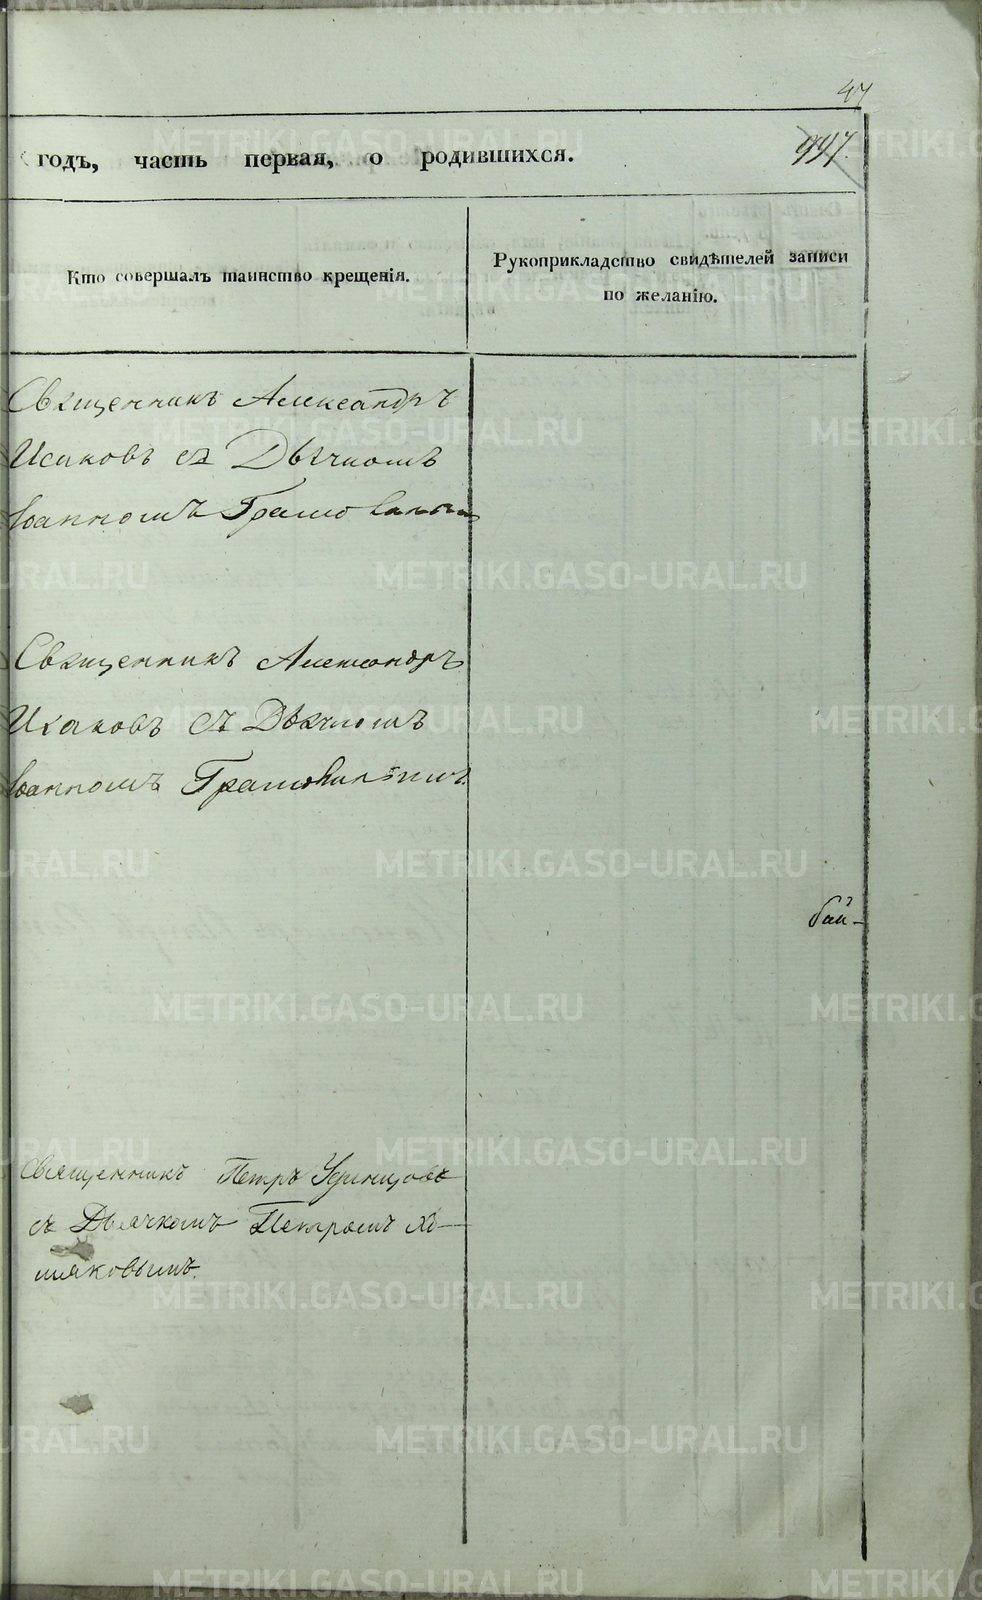 47
годъ, часть первая, о родившихся.
997.
Кто совершалъ таинство крещенія.
Рукоприкладство свидѣтелей записи
по желанію.
Священникъ Александръ
Исаковъ съ Дьячкомъ
Іоанномъ
Священникъ Александръ
Исаковъ съ Дьячкомъ
Іоанномъ
Священникъ Петръ Удинцовъ
съ Дьячкомъ Петромъ Хо-
мяковымъ.
METRIKI.GASO-URAL.RU